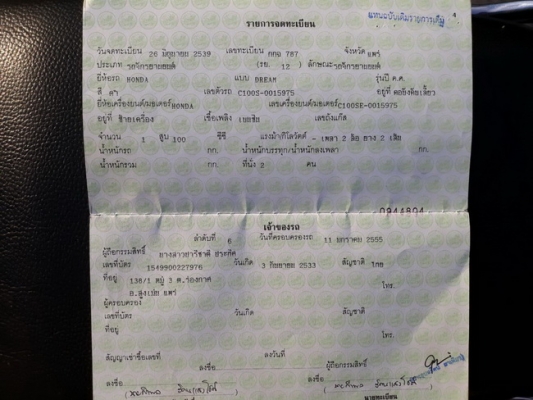 แทนฉบับเดิมรายการเต็ม
รายการจดทะเบียน
วันจดทะเบียน 26 มิถุนายน 2539 เลขทะเบียน กกฉ 787 จังหวัด แพร่
ประเภท รถจักรยานยนต์ (รย. 12 ) ลักษณะ รถจักรยานยนต์
ยี่ห้อรถ HONDA แบบ DREAM รุ่นปี ค.ศ.
สี ดำ เลขตัวรถ C100S-0015975 อยู่ที่ คอยึดเลี้ยว
ยี่ห้อเครื่องยนต์มอเตอร์ HONDA เลขเครื่องยนต์มอเตอร์ C100SE-0015975
อยู่ที่ ซ้ายเครื่อง เชื้อเพลิง เบนซิน เลขถังแก๊ส
จำนวน 1 สูบ 100 ซีซี แรงม้า/กิโลวัตต์ - เพลา 2 ล้อ ยาง 2 เส้น
น้ำหนักรถ กก. น้ำหนักบรรทุก/น้ำหนักลงเพลา กก.
น้ำหนักรวม กก. ที่นั่ง 2 คน
เจ้าของรถ
ลำดับที่ 6 วันที่ครอบครองรถ 11 มกราคม 2555
ผู้ถือกรรมสิทธิ์ นางสาว
เลขที่บัตร 1549900227976 วันเกิด 3 กันยายน 2533 สัญชาติ ไทย
ที่อยู่ 138/1 หมู่ 3 ต.ร่องกาศ
อ.สูงเม่น แพร่ โทร.
ผู้ครอบครอง
เลขที่บัตร วันเกิด สัญชาติ
ที่อยู่
โทร.
สัญญาเช่าซื้อเลขที่ ลงวันที่
ลงชื่อ ผู้ถือกรรมสิทธิ์
ลงชื่อ ลงชื่อ
นายทะเบียน